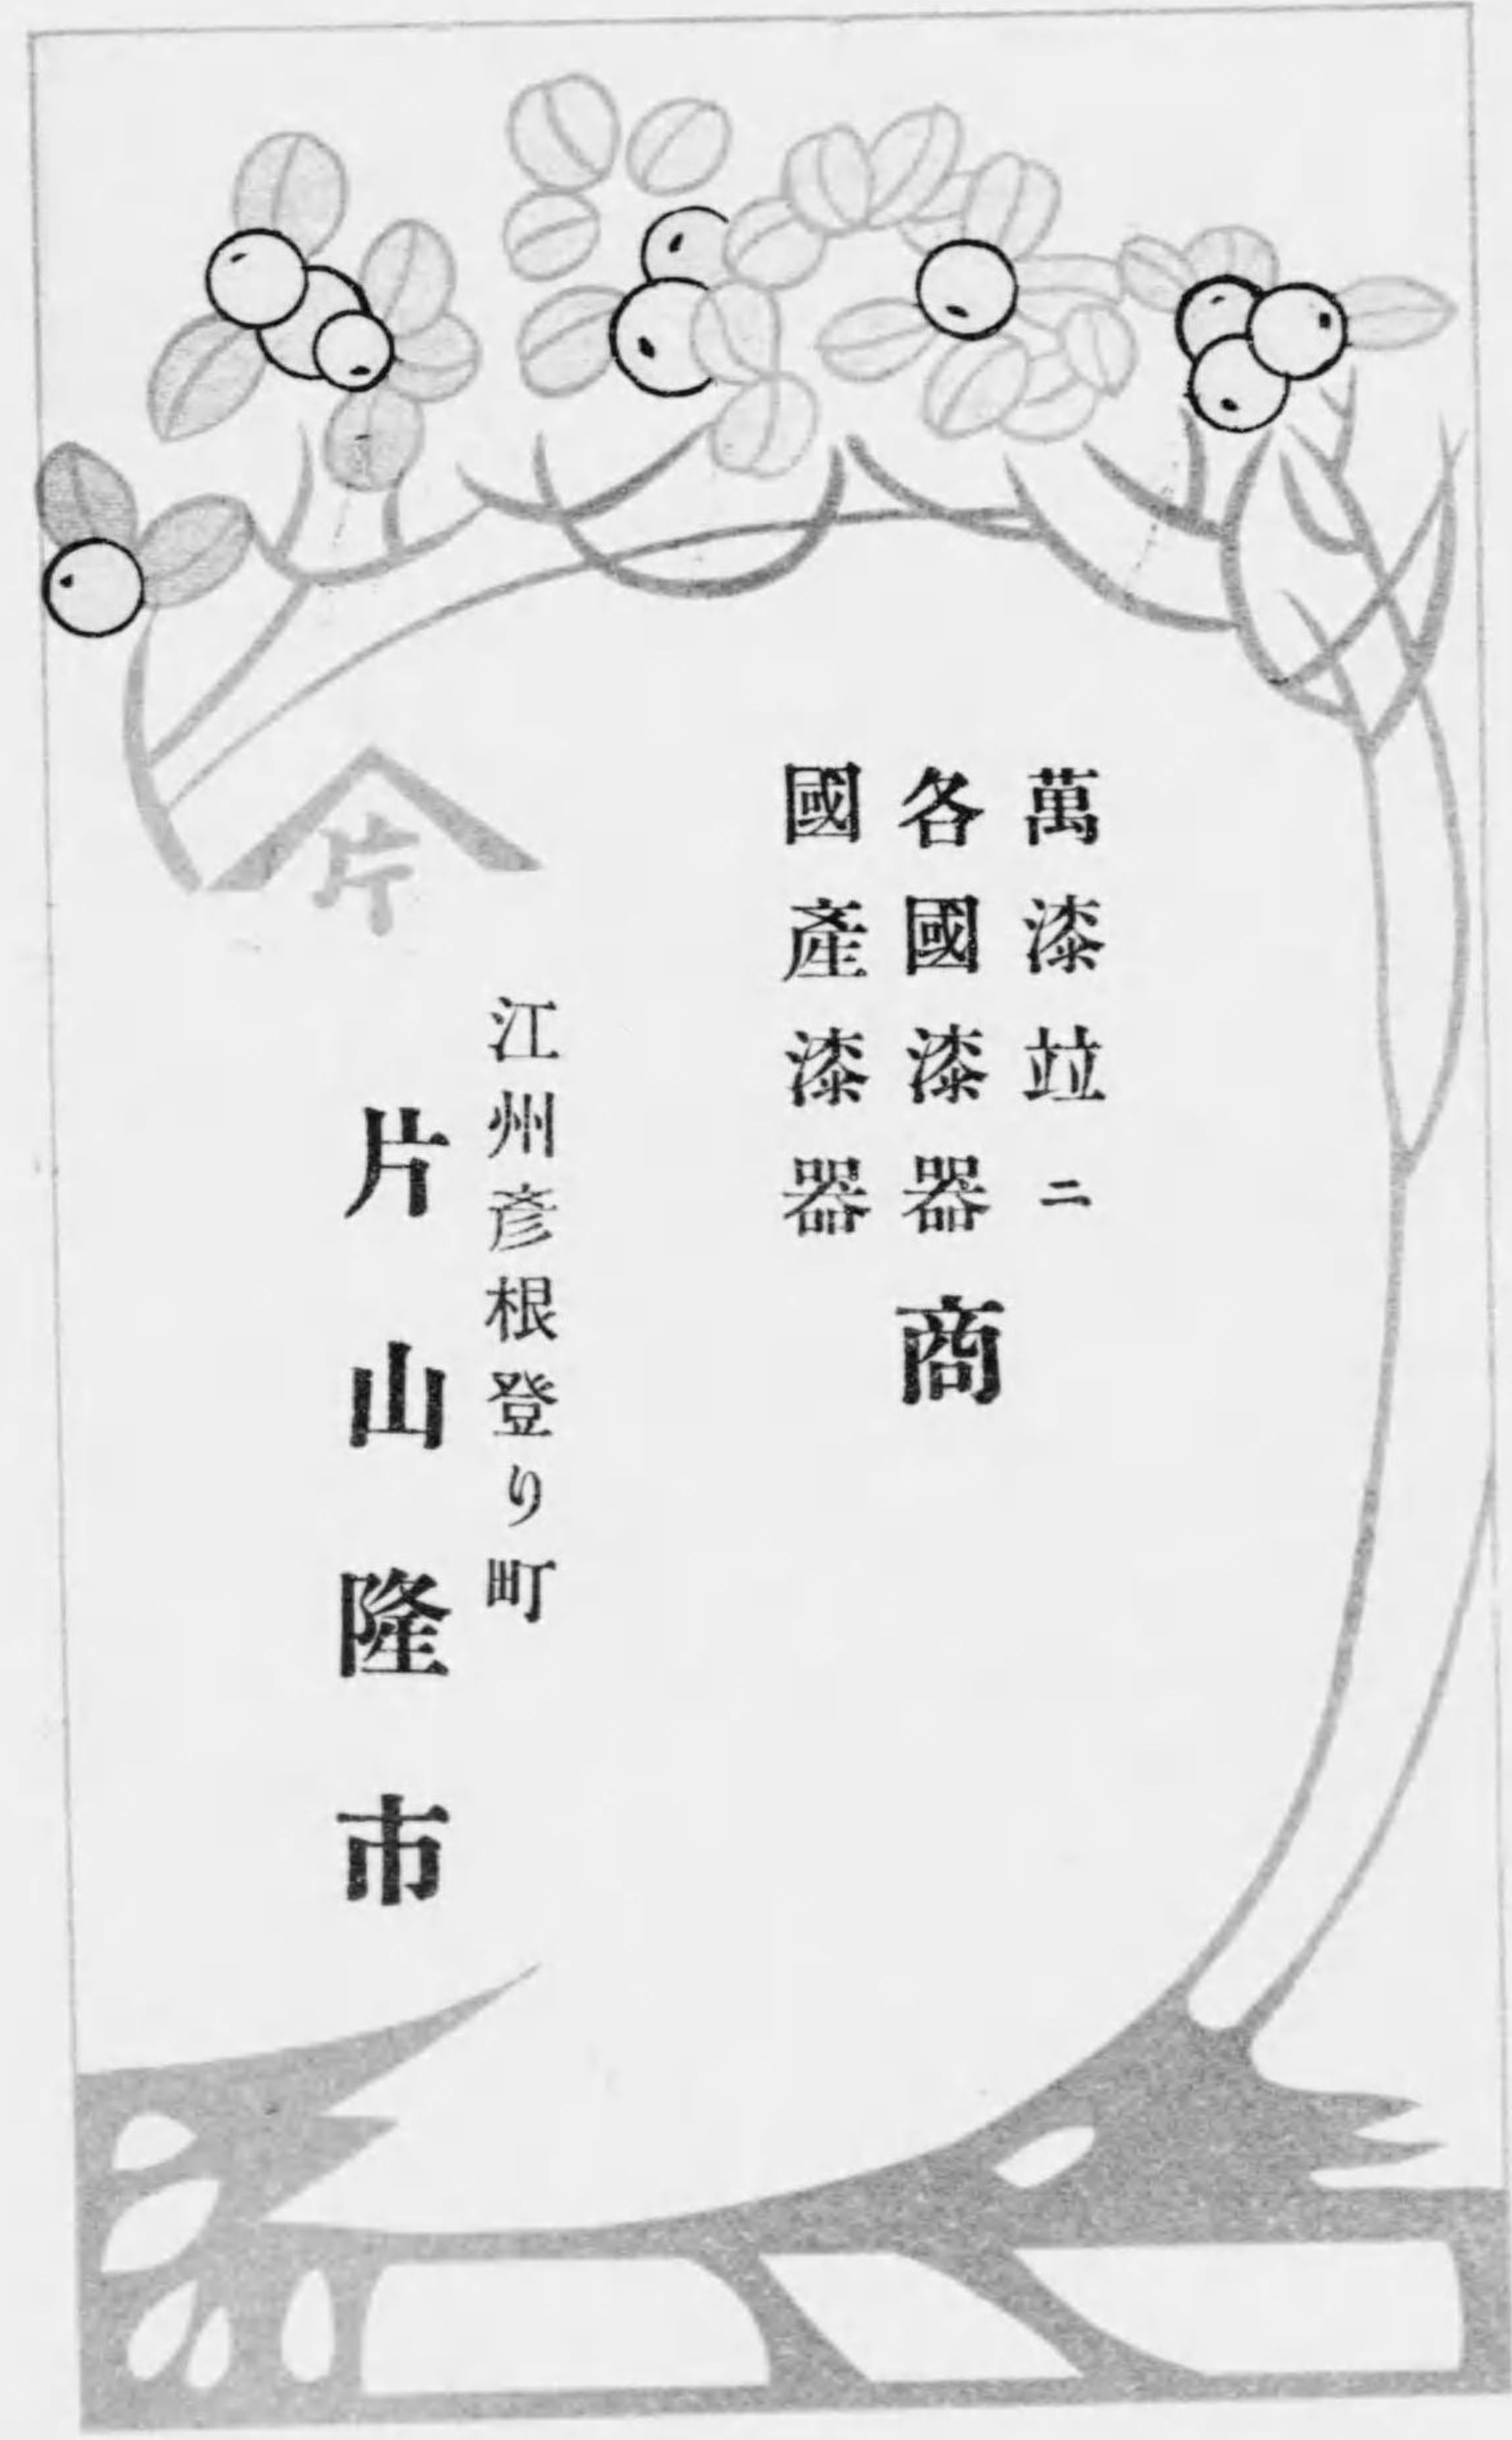 萬漆竝ニ
各國漆器
國產漆器
商
江州彦根登り町
片山隆市
片